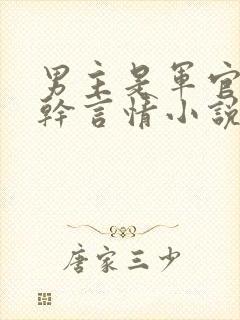 男主是軍官
幹言情小說
唐家三少